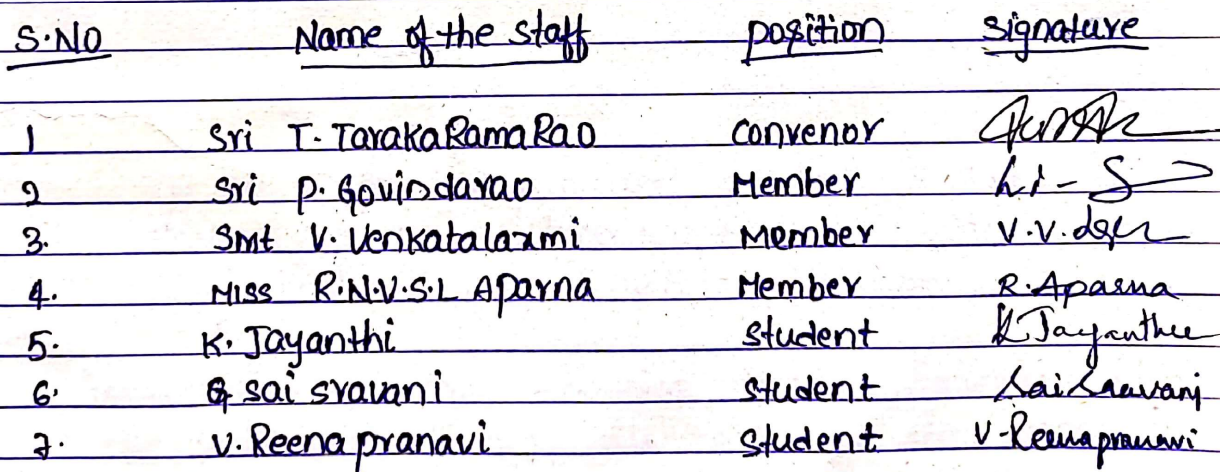 S.NO Name of the staff position signature
1 Sri T. TarakaRamaRao convenor
2 Sri P. Govindarao Member
3. Smt V. Venkatalaxmi Member V.V.
4. Miss R.N.V.S.L Aparna Member R.Aparna
5. K. Jayanthi student K Jayanthee
6. G sai sravani student Sai Sravani
7. V. Reena pranavi student V-Reenapranavi